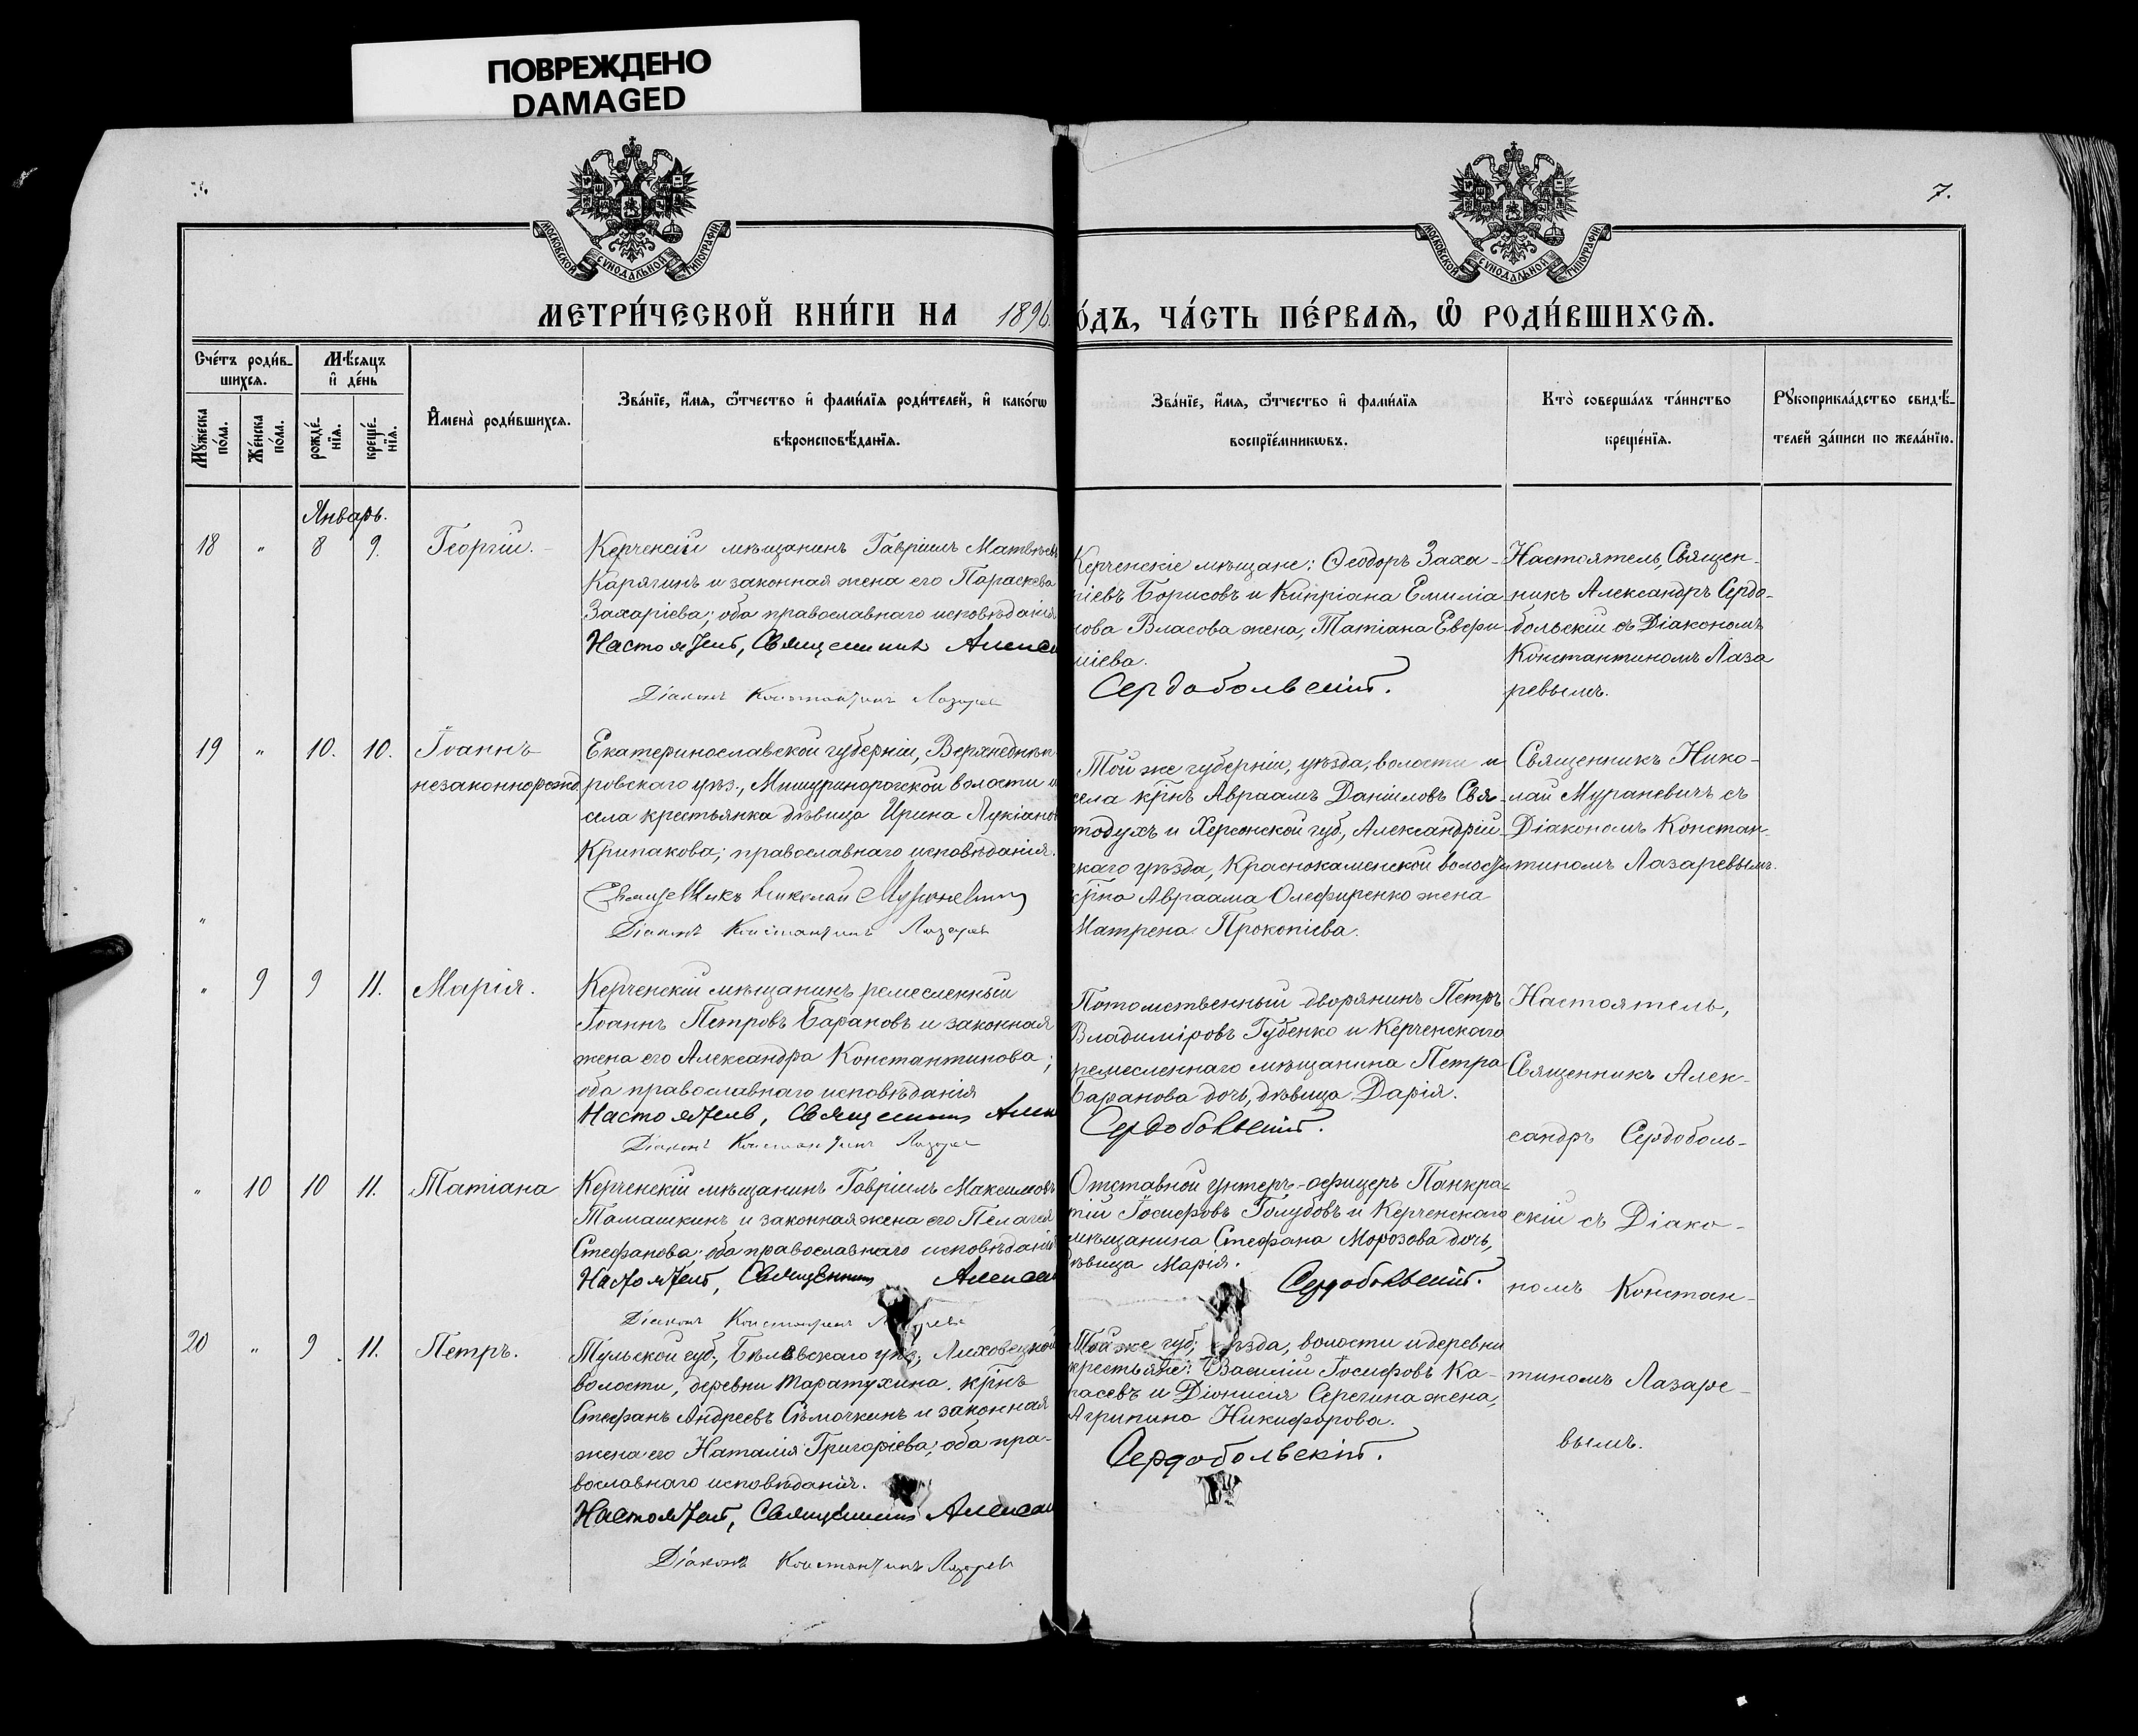 ПОВРЕЖДЕНО
DAMAGED
7.
МОСКОВСКОЙ СѴНОДАЛЬНОЙ ТИПОГРАФІИ
МОСКОВСКОЙ СѴНОДАЛЬНОЙ ТИПОГРАФІИ
МЕТРИ́ЧЕСКОЙ КНИ́ГИ НА 1896.
О́ДЪ, ЧА́СТЬ ПЕ́РВАѦ, Ѡ҆ РОДИ́ВШИХСѦ.
Сче́тъ роди́в-
шихсѧ.
Мꙋ́жеска по́ла.
Же́нска по́ла.
Мѣ́сѧцъ
и҆ де́нь
рожде́нїѧ.
креще́нїѧ.
И҆мена̀ роди́вшихсѧ.
Зва́нїе, и҆́мѧ, ѻ҆́тчество и҆ фами́лїѧ роди́телей, и҆ како́гѡ
вѣроисповѣ́данїѧ.
Зва́нїе, и҆́мѧ, ѻ҆́тчество и҆ фами́лїѧ
воспрїе́мникѡвъ.
Кто̀ соверша́лъ та́инство
креще́нїѧ.
Рꙋкоприкла́дство свидѣ́-
телей за́писи по жела́нїю.
Январь.
18 " 8 9. Георгій.
Керченскій мѣщанинъ Гавріилъ Матвѣевъ
Карягинъ и законная жена его Параскева
Захаріева; оба православнаго исповѣданія
Настоятель, Священникъ Алекса
Діаконъ Константинъ Лазарев
Керченскіе мѣщане: Ѳеодоръ Заха-
ріевъ Борисовъ и Кипріана Емиліа-
нова Власова жена, Татіана Евфи-
міева.
Сердобольскій.
Настоятель, Священ-
никъ Александръ Сердо-
больскій съ Діакономъ
Константиномъ Лаза
ревымъ.
19 " 10. 10. Іоаннъ
незаконнорожд.
Екатеринославской губерніи, Верхнеднѣп
ровскаго уѣз., Мишуринорогской волости и
села крестьянка дѣвица Ирина Лукіанов
Крипакова; православнаго исповѣданія.
Священникъ Николай Мураневичъ
Діаконъ Константинъ Лазарев
Той же губерніи, уѣзда, волости и
села кр҃нъ Авраамъ Даніиловъ Свя-
тодухъ и Херсонской губ., Александрій-
скаго уѣзда, Краснокаменской волости
кр҃на Авраама Олефиренко жена
Матрена Прокопіева.
Священникъ Нико-
лай Мураневичъ съ
Діакономъ Констан-
тиномъ Лазаревымъ.
"
" 9 9 11. Марія.
Керченскій мѣщанинъ ремесленный
Іоаннъ Петровъ Барановъ и законная
жена его Александра Константинова;
оба православнаго исповѣданія
Настоятель, Священникъ Алек
Діаконъ Константинъ Лазарев
Потомственный дворянинъ Петръ
Владиміровъ Губенко и Керченскаго
ремесленнаго мѣщанина Петра
Баранова дочь, дѣвица Дарія.
Сердобольскій.
Настоятель,
Священникъ Алек-
сандръ Сердоболь-
скій съ Діако-
номъ Констан-
тиномъ Лазаре-
вымъ.
" 10 10 11. Татіана
Керченскій мѣщанинъ Гавріилъ Максимовъ
Томашкинъ и законная жена его Пелагея
Стефанова оба православнаго исповѣданія
Настоятель, Священникъ Алексан
Діаконъ Константинъ Лазарев
Отставной унтеръ-офицеръ Панкра-
тій Іосифовъ Голубовъ и Керченскаго
мѣщанина Стефана Морозова дочь,
дѣвица Марія.
Сердобольскій.
20 " 9 11. Петръ.
Тульской губ., Бѣлевскаго уѣз., Лиховецкой
волости, деревни Таратухина. кр҃нъ
Стефанъ Андреевъ Сѣмочкинъ и законная
жена его Наталія Григоріева; оба пра-
вославнаго исповѣданія.
Настоятель, Священникъ Алексан
Діаконъ Константинъ Лазарев
Той же губ., уѣзда, волости и деревни
крестьяне: Василій Іосифовъ Ка-
расевъ и Діонисія Серегина жена,
Агрипина Никифорова.
Сердобольскій.